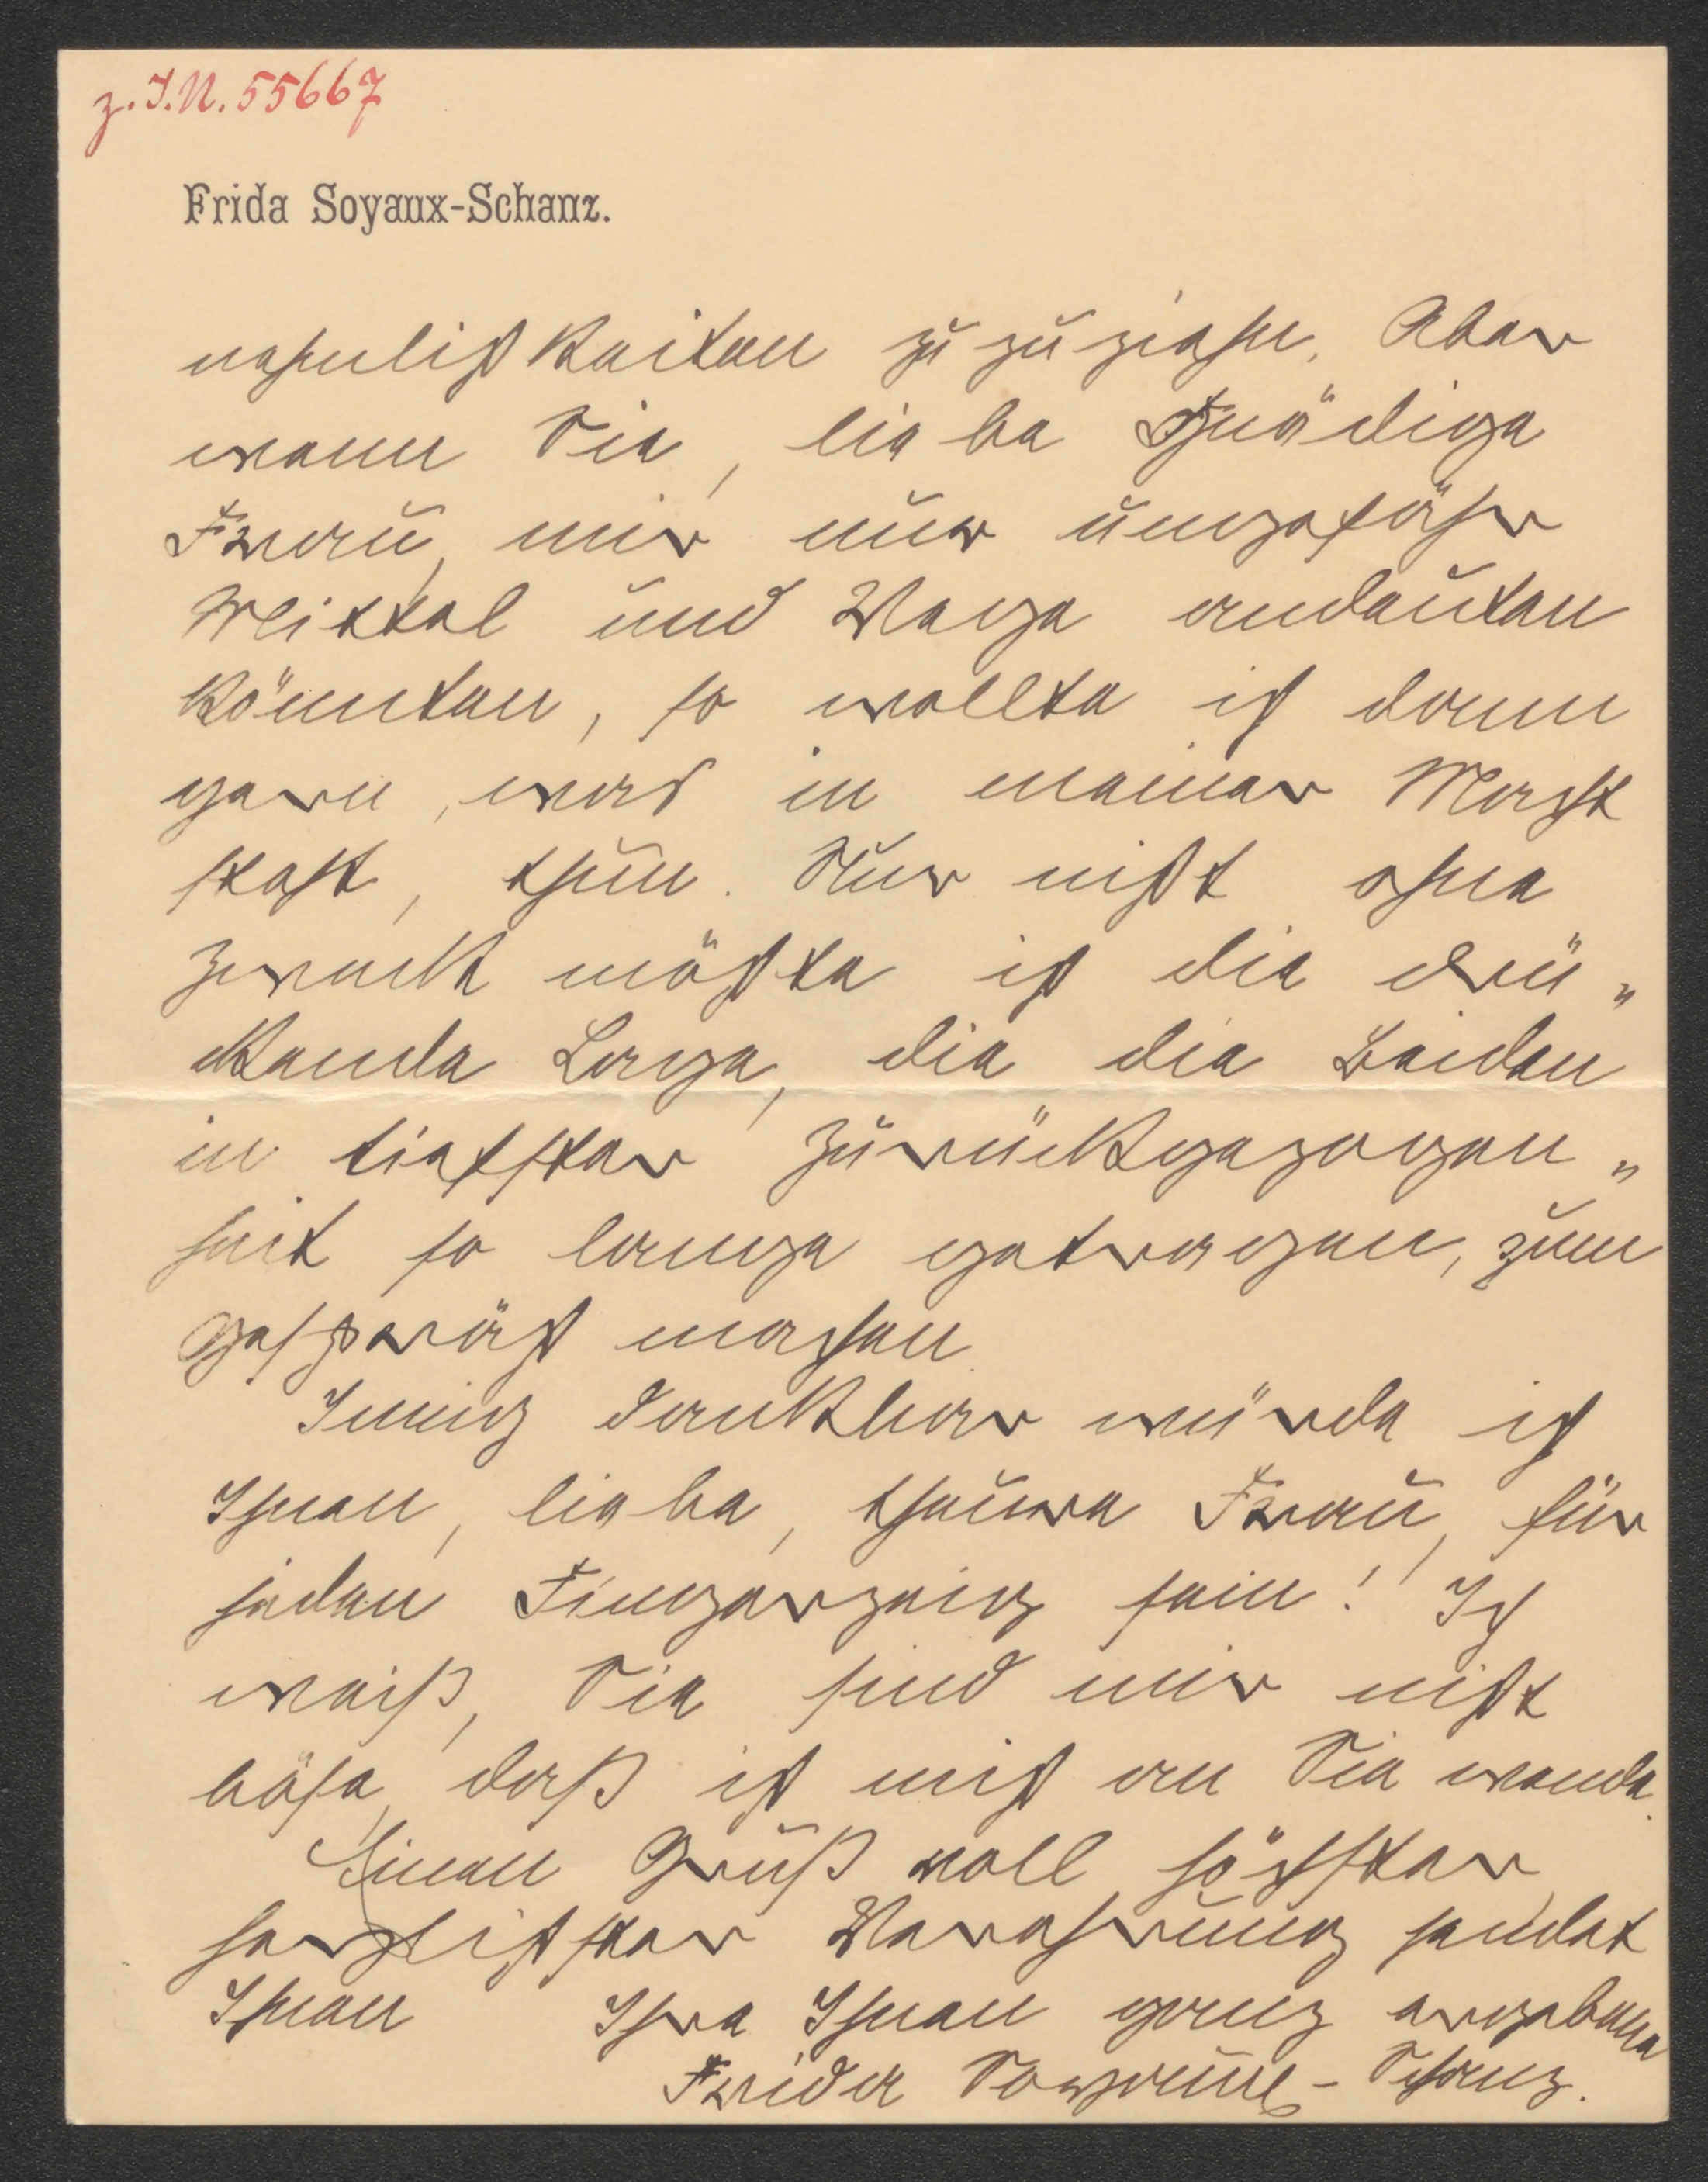 z. I.N. 55667
Frida Soyaux-Schanz.
nehmlichkeiten zuzuziehn. Aber
wenn Sie, liebe Gnädige
Frau, mir nur ungefähr
Mittel und Wege andeuten
könnten, so wollte ich dann
gern, was in meiner Macht
steht, thun. Nur nicht ohne
Zweck möchte ich die drü„
ckende Lage, die die Beiden
in tiefster Zurückgezogen„
heit so lange getragen, zum
Gespräch machen
Innig dankbar würde ich
Ihnen, liebe, theure Frau, für
jeden Fingerzeig sein! Ich
weiß, Sie sind mir nicht
böse, daß ich mich an Sie wende.
Einen Gruß voll höchster,
herzlichster Verehrung sendet
Ihnen Ihre Ihnen ganz ergebene
Frida Soyaux-Schanz.